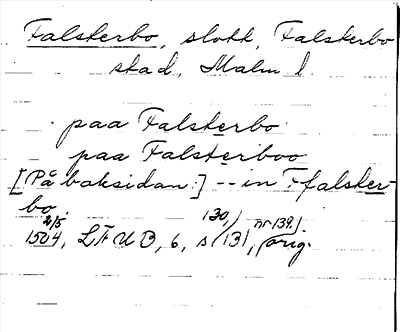 Falsterbo, slott, Falsterbo
stad, Malm l.
paa Falsterbo
paa Falsterboo
[På baksidan:] -- in Ffalster-
bo.
2/5 1504, LFUB, 6, s 130, (131, nr 139), orig.